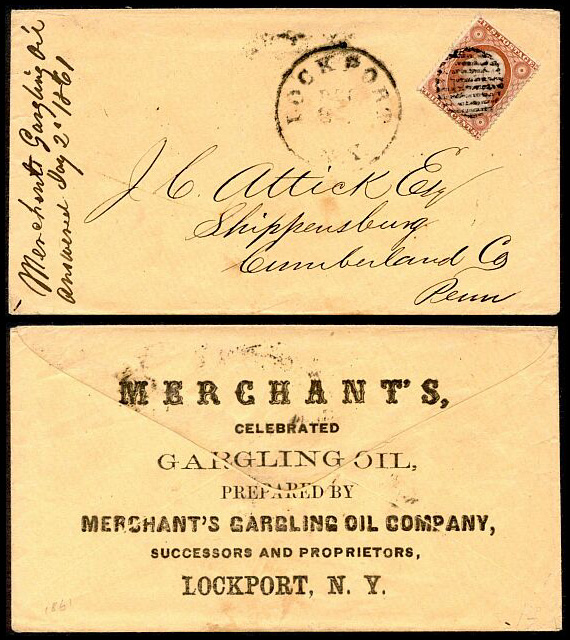 Merchants Gargling Oil
answered 1861
LOCKPORT
N.Y.
U.S. POSTAGE
J. C. Attick Esq
Shippensburg
Cumberland Co
Penn
MERCHANT'S,
CELEBRATED
GARGLING OIL,
PREPARED BY
MERCHANT'S GARGLING OIL COMPANY,
SUCCESSORS AND PROPRIETORS,
LOCKPORT, N. Y.
1861